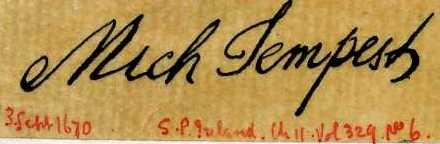 Mich Tempest
3 Sept 1670 S.P. Ireland. Ch II. Vol 329. No 6.